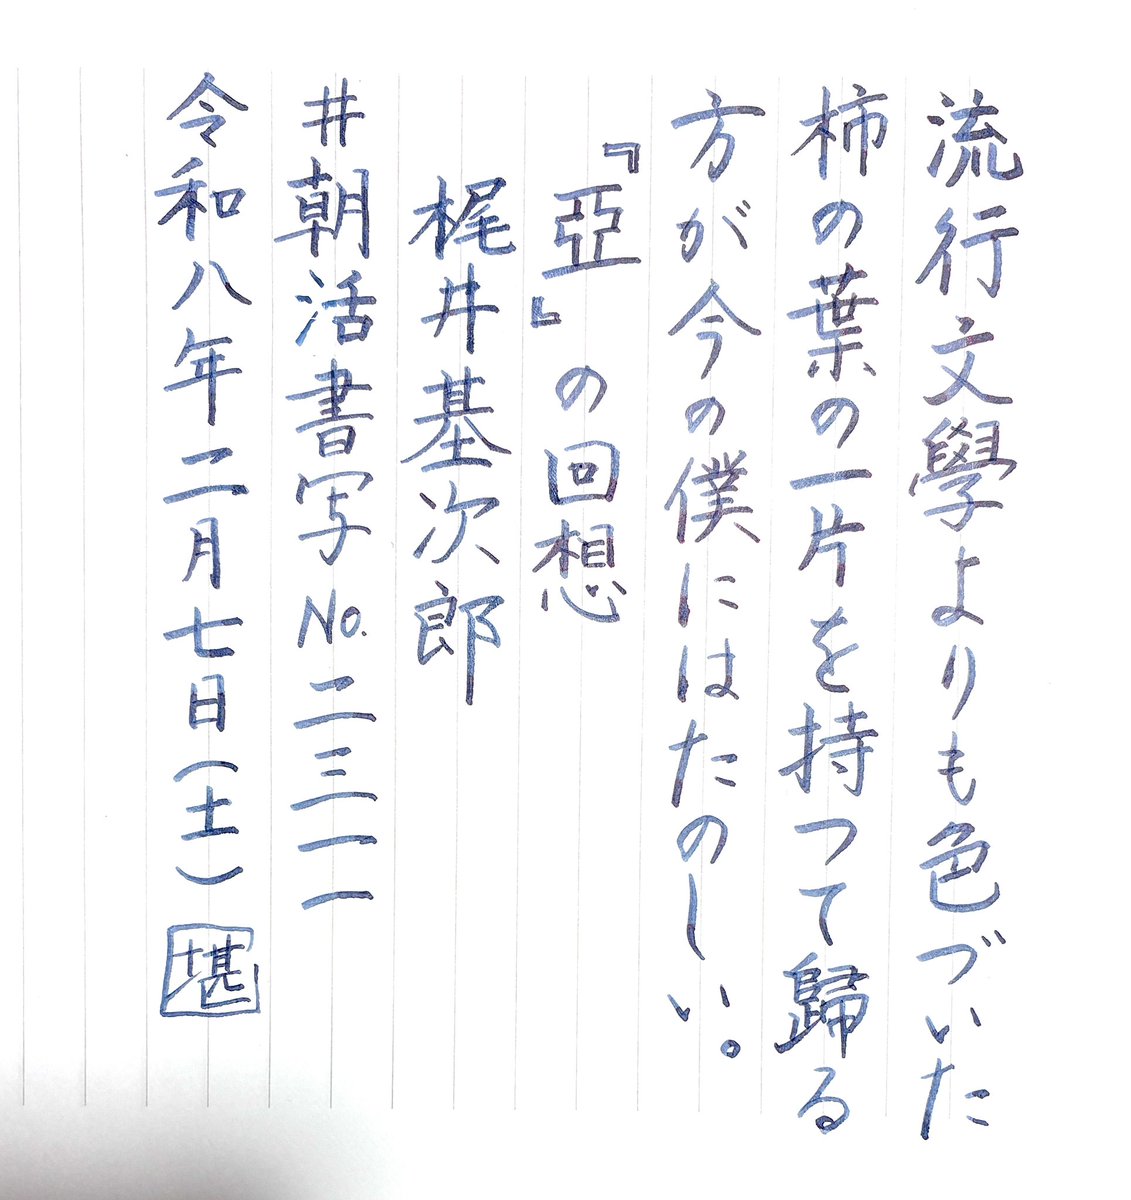 流行文學よりも色づいた
柿の葉の一片を持つて歸る
方が今の僕にはたのしい。
『亞』の回想
梶井基次郎
#朝活書写No.二三一一
令和八年二月七日(土)堪